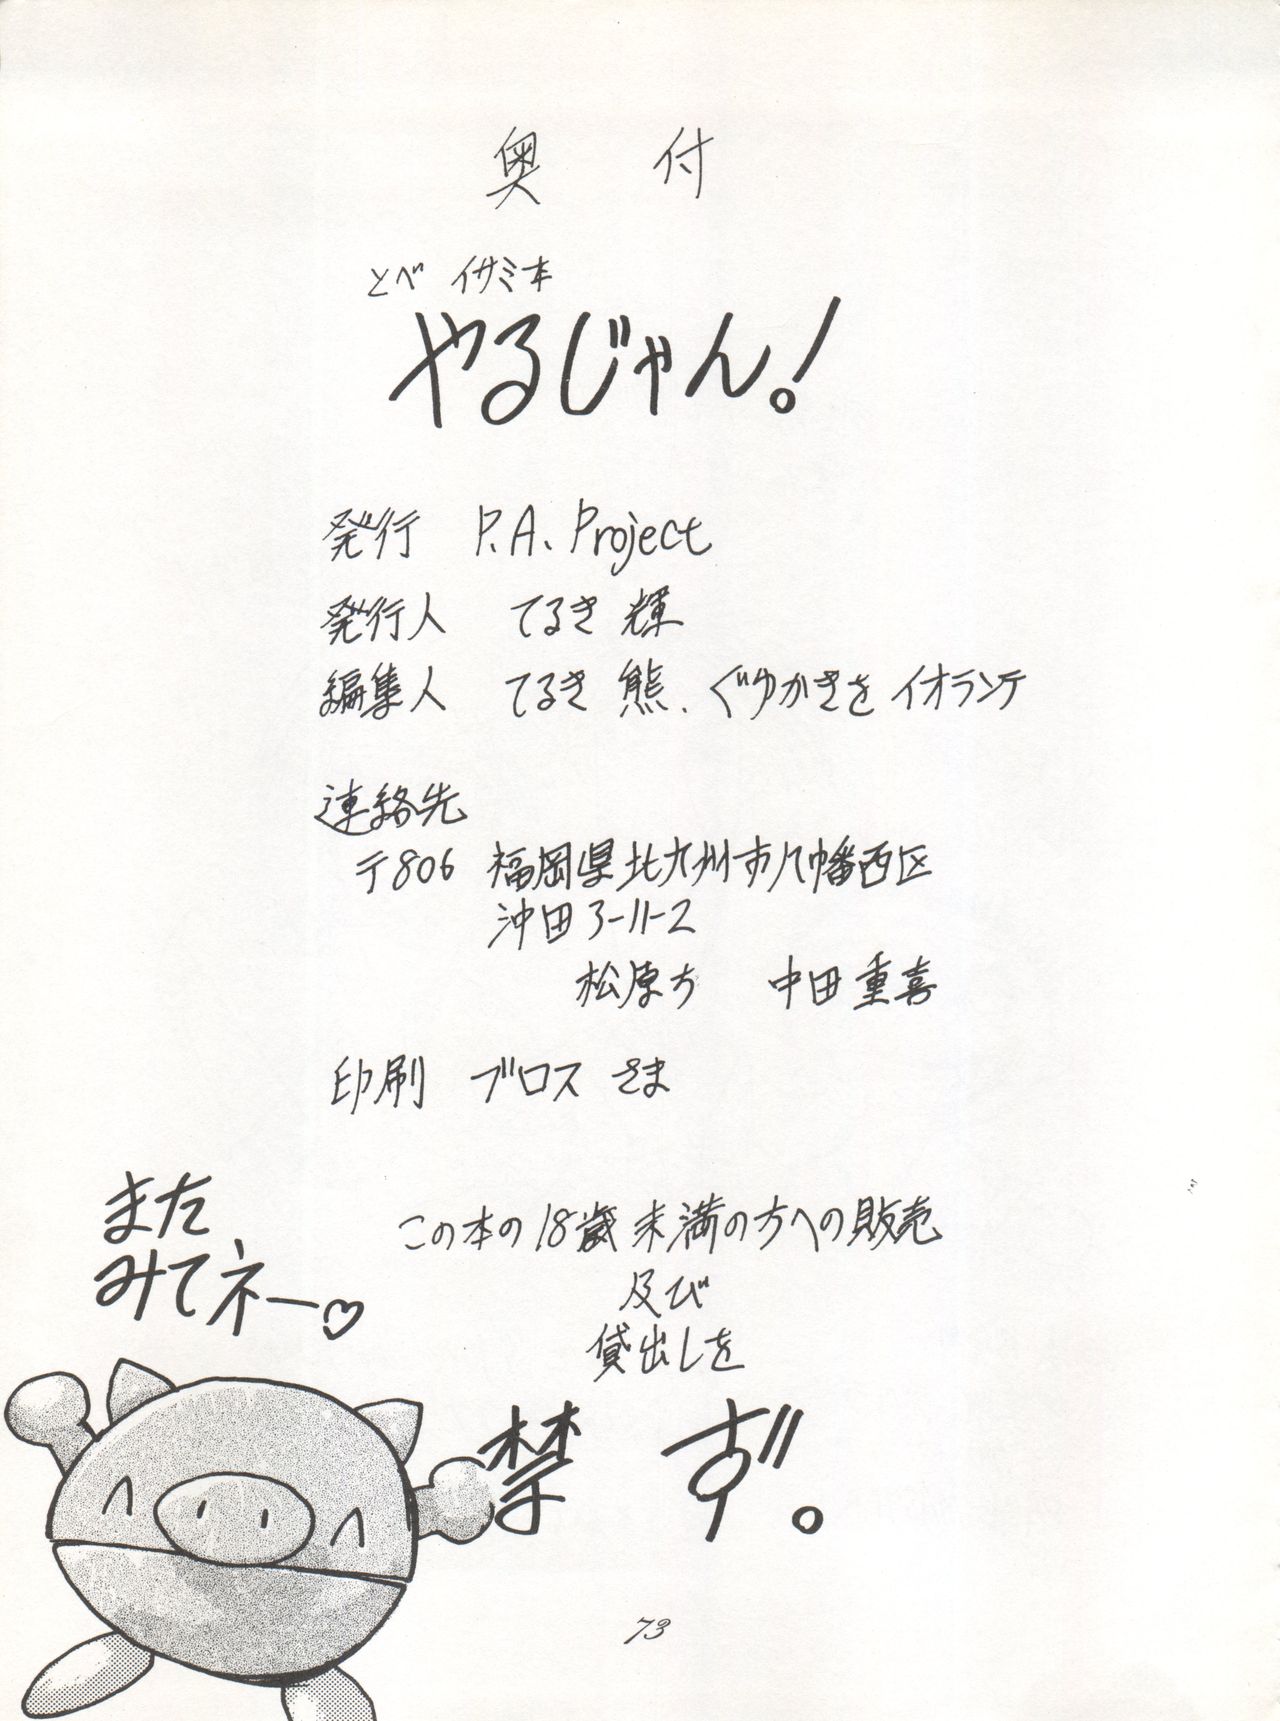 奥付
とべ イサミ本
やるじゃん。!
発行 P.A. Project
発行人 てるき 輝
編集人 てるき 熊、ぐゆかきを イオランテ
連絡先
〒806 福岡県北九州市八幡西区
沖田3-11-2
松原方 中田重喜
印刷 ブロス さま
また
みてネー♡
この本の18歳未満の方への販売
及び
貸出しを
禁ず。
73